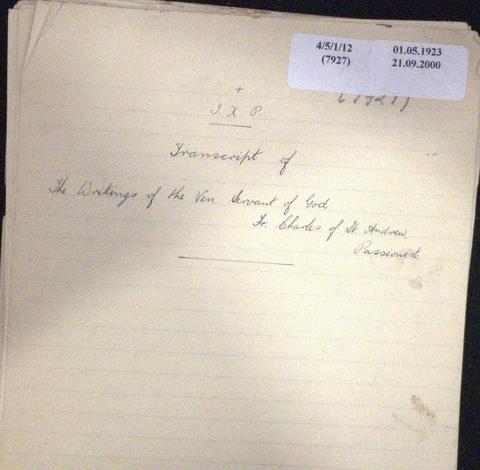 4/5/1/12
(7927)
01.05.1923
21.09.2000
(7927)
+
J. X. P.
Transcript of
The Writings of the Ven Servant of God
Fr. Charles of St. Andrew
Passionist.